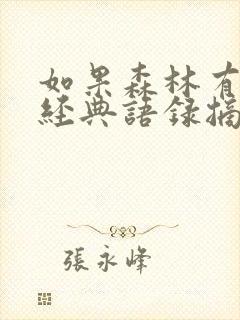 如果森林有
經典語錄摘
張永峰